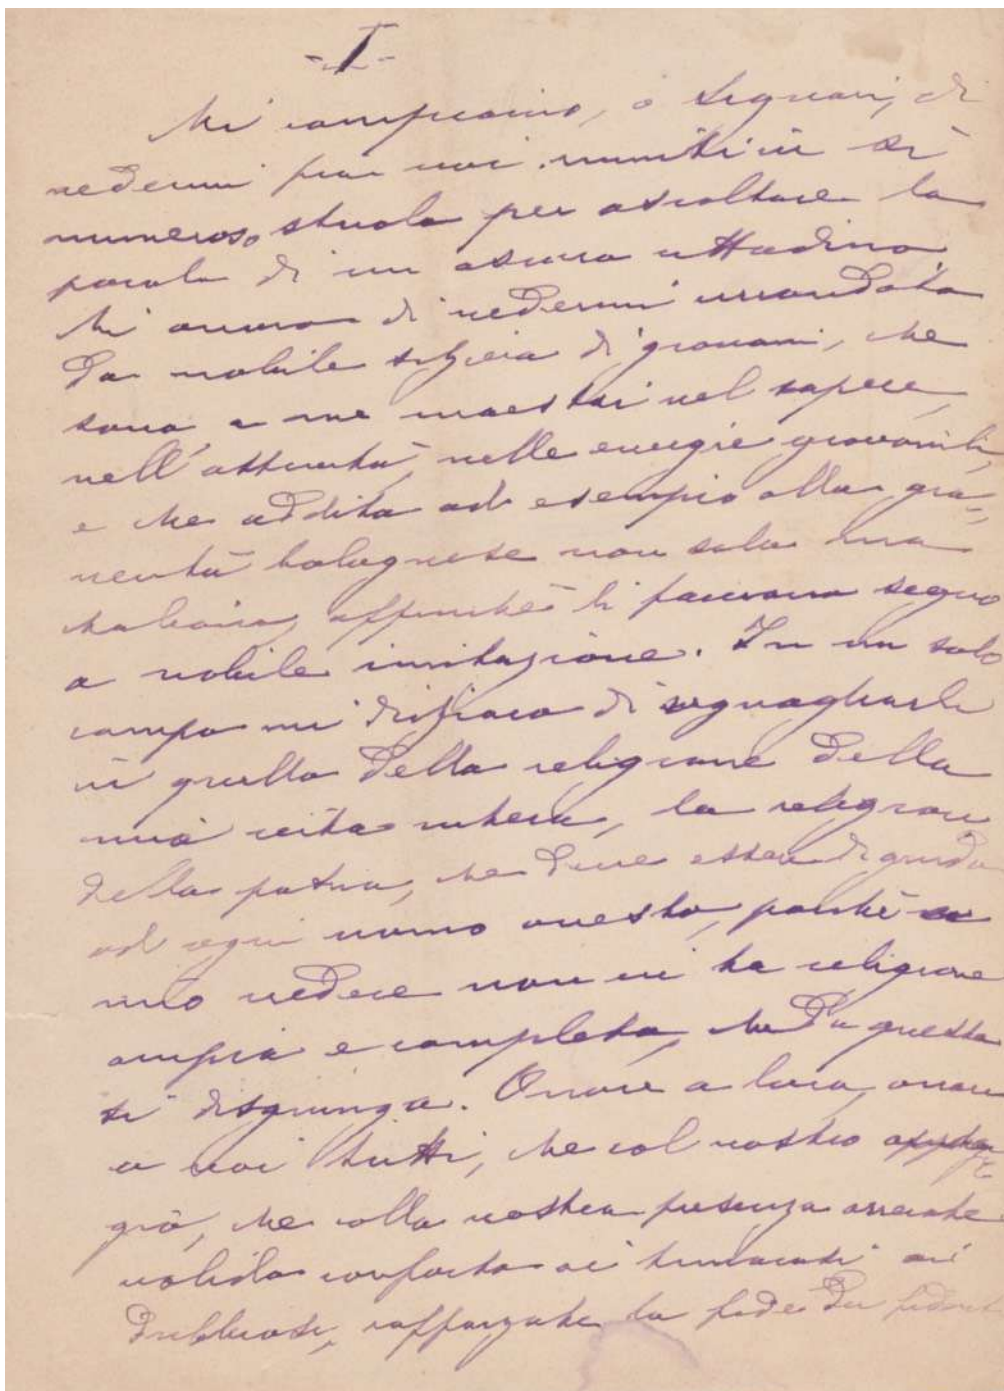 -I-
Mi compiaccio, o Signori, di
vedermi fra voi riuniti in sì
numeroso stuolo per ascoltare la
parola di un oscuro cittadino.
Mi onoro di vedermi circondato
da nobile schiera di giovani, che
sono a me maestri nel sapere,
nell'attività, nelle energie giovanili,
e che addito ad esempio alla gio=
ventù bolognese non solo ma
italiana, affinchè li facciano segno
a nobile imitazione. In un solo
campo mi di eguagliarli
in quello della religione della
mia vita intera, la religion
della patria, che deve essere di guida
ad ogni uomo onesto, poichè a
mio vedere non vi ha religione
ampia e completa, che da questa
si disgiunga. Onore a loro, onore
a voi tutti, che col vostro appog
giò, che colla vostra presenza arrecate
valido conforto ai timorati ai
dubbiosi, rafforzate la fede dei